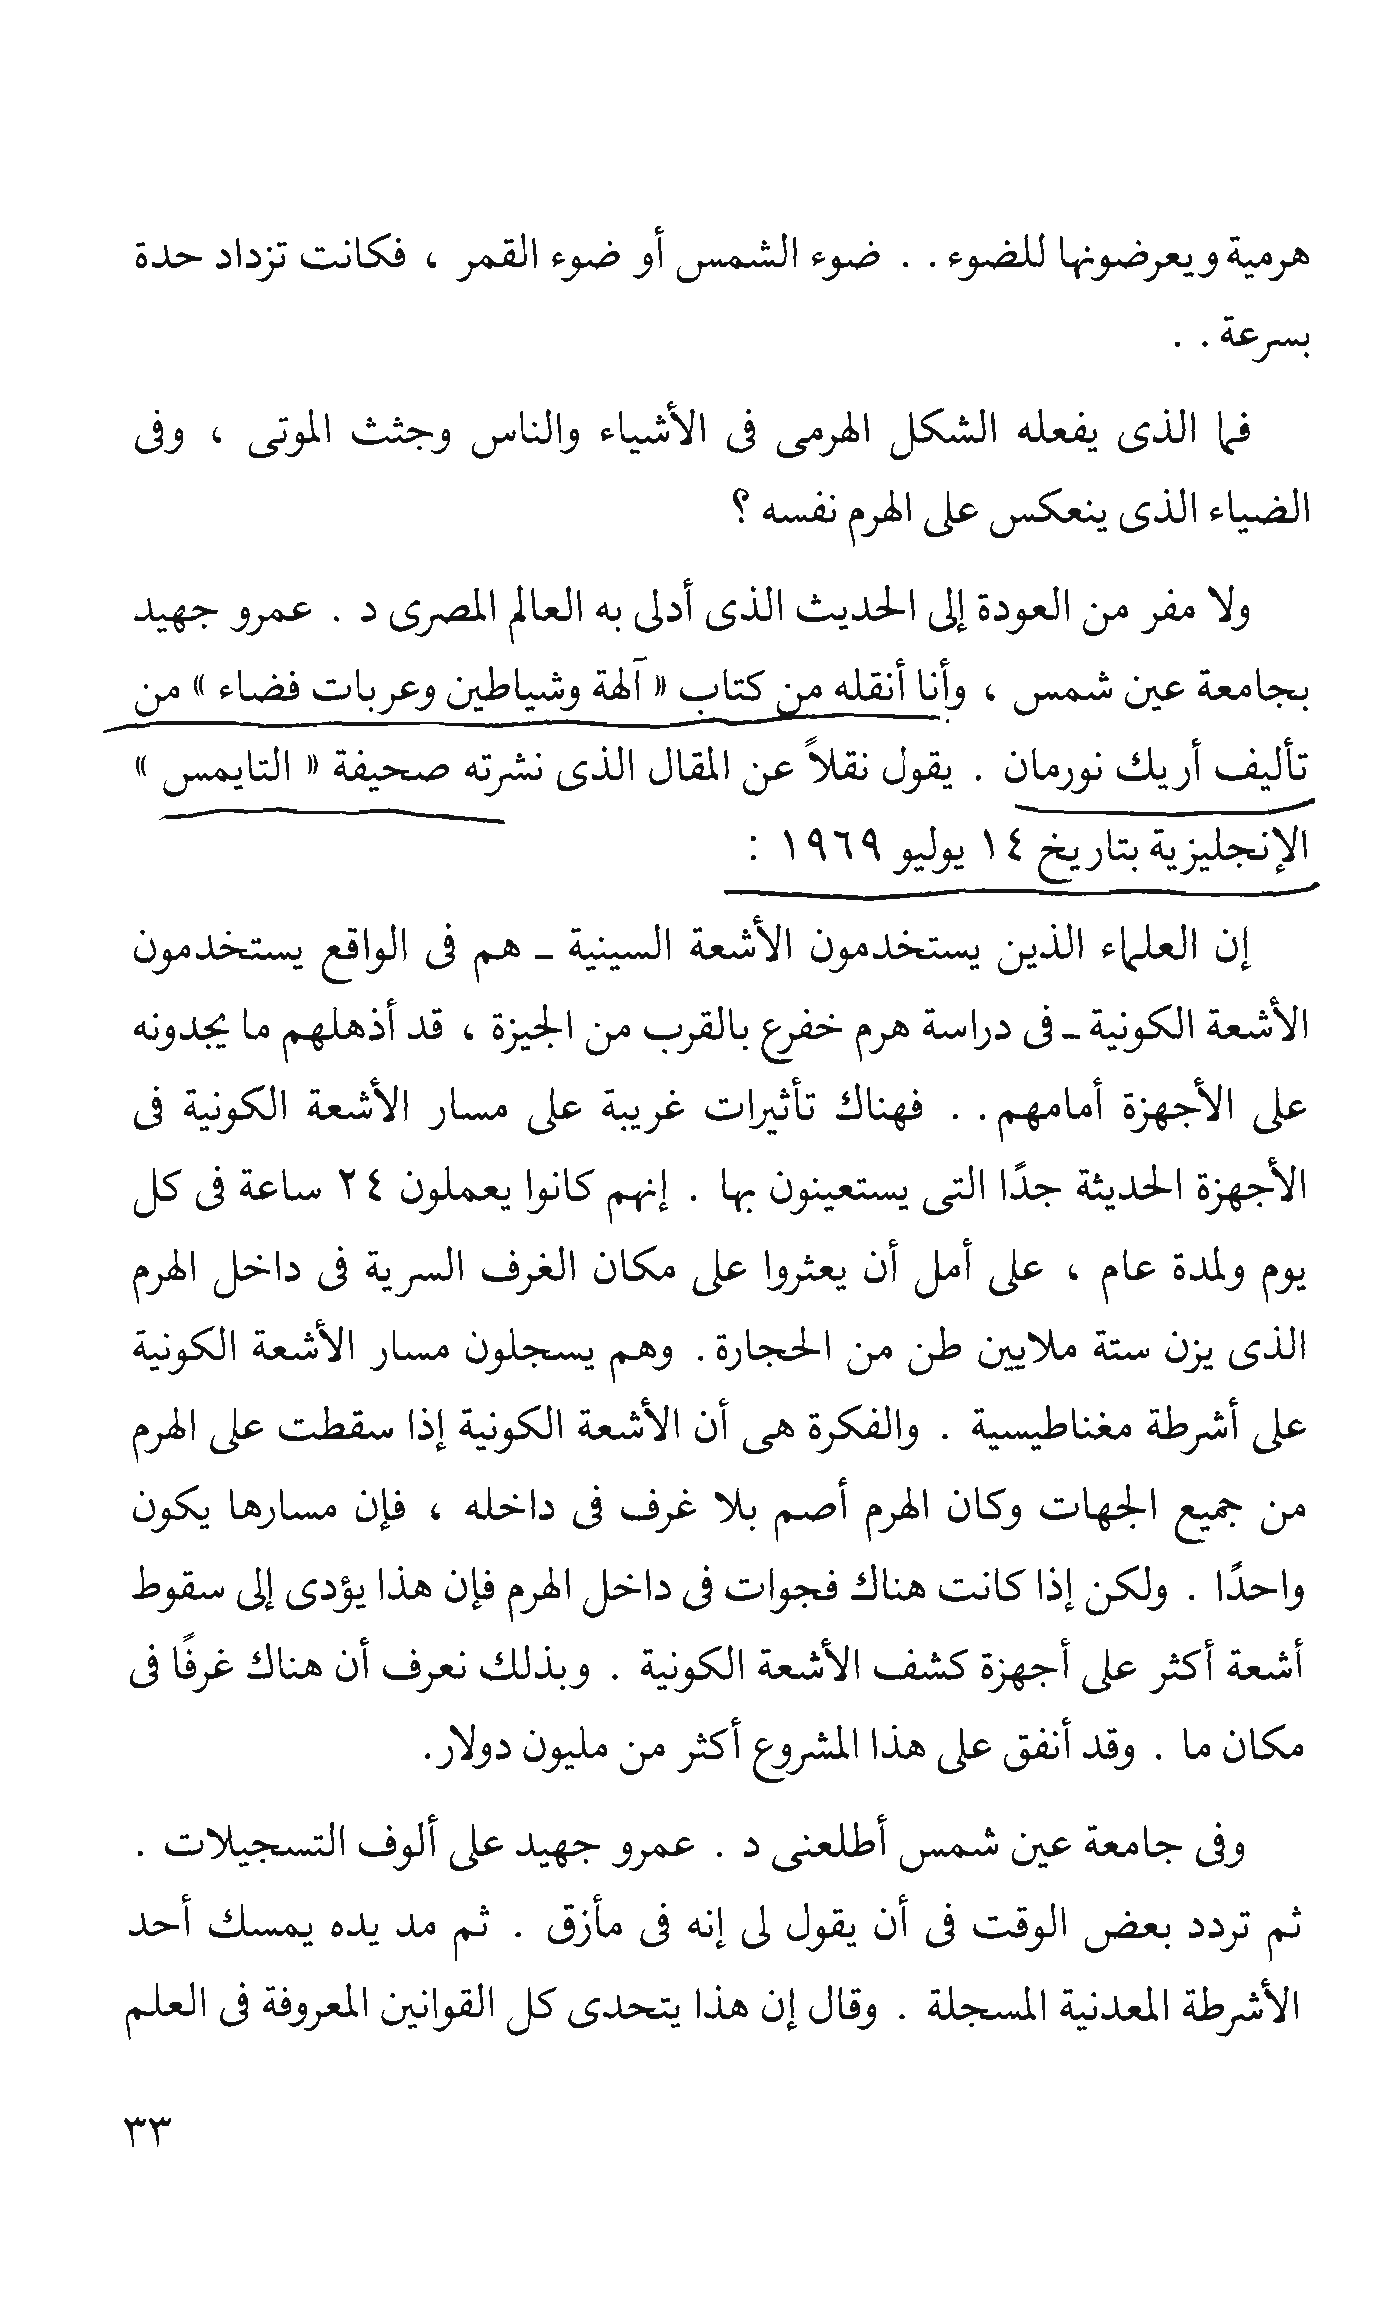 هرمية ويعرضونها للضوء . . ضوء الشمس أو ضوء القمر ، فكانت تزداد حدة
بسرعة . .
فما الذى يفعله الشكل الهرمى فى الأشياء والناس وجثث الموتى ، وفى
الضياء الذى ينعكس على الهرم نفسه ؟
ولا مفر من العودة إلى الحديث الذى أدلى به العالم المصرى د . عمرو جهيد
بجامعة عين شمس ، وأنا أنقله من كتاب « آلهة وشياطين وعربات فضاء » من
تأليف أريك نورمان . يقول نقلاً عن المقال الذى نشرته صحيفة « التايمس »
الإنجليزية بتاريخ ١٤ يوليو ١٩٦٩ :
إن العلماء الذين يستخدمون الأشعة السينية ـ هم فى الواقع يستخدمون
الأشعة الكونية ـ فى دراسة هرم خفرع بالقرب من الجيزة ، قد أذهلهم ما يجدونه
على الأجهزة أمامهم . . فهناك تأثيرات غريبة على مسار الأشعة الكونية فى
الأجهزة الحديثة جدًا التى يستعينون بها . إنهم كانوا يعملون ٢٤ ساعة فى كل
يوم ولمدة عام ، على أمل أن يعثروا على مكان الغرف السرية فى داخل الهرم
الذى يزن ستة ملايين طن من الحجارة . وهم يسجلون مسار الأشعة الكونية
على أشرطة مغناطيسية . والفكرة هى أن الأشعة الكونية إذا سقطت على الهرم
من جميع الجهات وكان الهرم أصم بلا غرف فى داخله ، فإن مسارها يكون
واحدًا . ولكن إذا كانت هناك فجوات فى داخل الهرم فإن هذا يؤدى إلى سقوط
أشعة أكثر على أجهزة كشف الأشعة الكونية . وبذلك نعرف أن هناك غرفًا فى
مكان ما . وقد أنفق على هذا المشروع أكثر من مليون دولار.
وفى جامعة عين شمس أطلعنى د . عمرو جهيد على ألوف التسجيلات .
ثم تردد بعض الوقت فى أن يقول لى إنه فى مأزق . ثم مد يده يمسك أحد
الأشرطة المعدنية المسجلة . وقال إن هذا يتحدى كل القوانين المعروفة فى العلم
٣٣